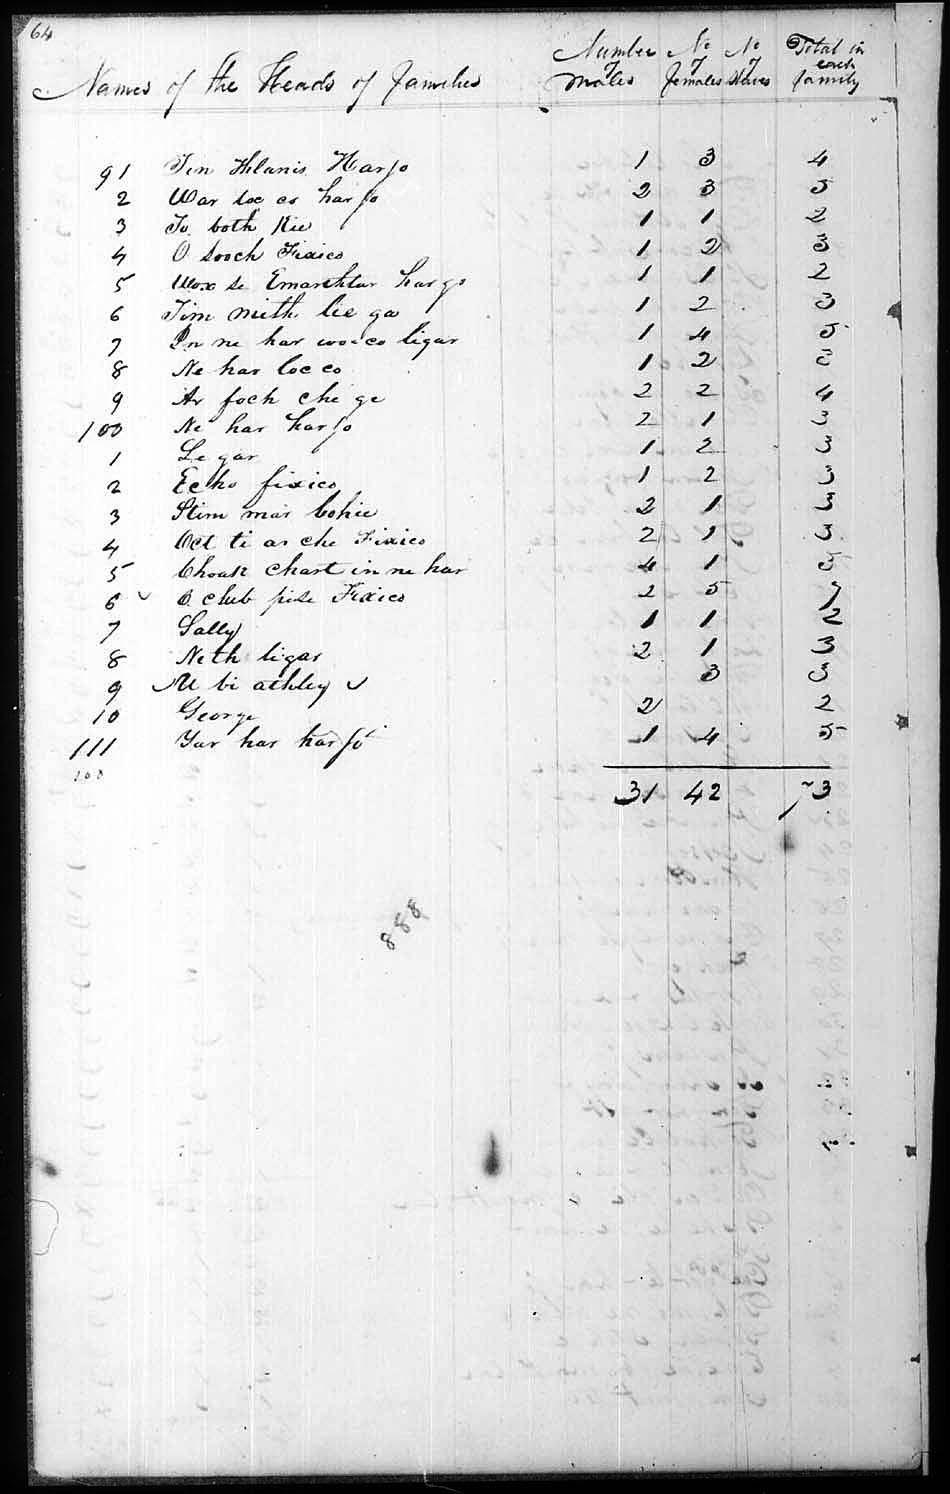 64
Names of the Heads of families Number of males No of females No of slaves Total in each family
91 Tin Hlanis Harjo 1 3 4
2 War loc co harjo 2 3 5
3 To both Kee 1 1 2
4 O sooch Fixico 1 2 3
5 Wox se Emarthlar hargo 1 1 2
6 Tim mith lie ga 1 2 3
7 In ne har woxco ligar 1 4 5
8 Ne har locco 1 2 3
9 Ar foch che ge 2 2 4
100 Ne har harjo 2 1 3
1 Le gar 1 2 3
2 Echo fixico 1 2 3
3 Stim mar bohie 2 1 3
4 Oct ti ar che Fixico 2 1 3
5 Choak chart in ne har 4 1 5
6 O club pise Fixico 2 5 7
7 Sally 1 1 2
8 Neth ligar 2 1 3
9 M bi athley 3 3
10 George 2 2
111 Yar har harjo 1 4 5
31 42 73
888